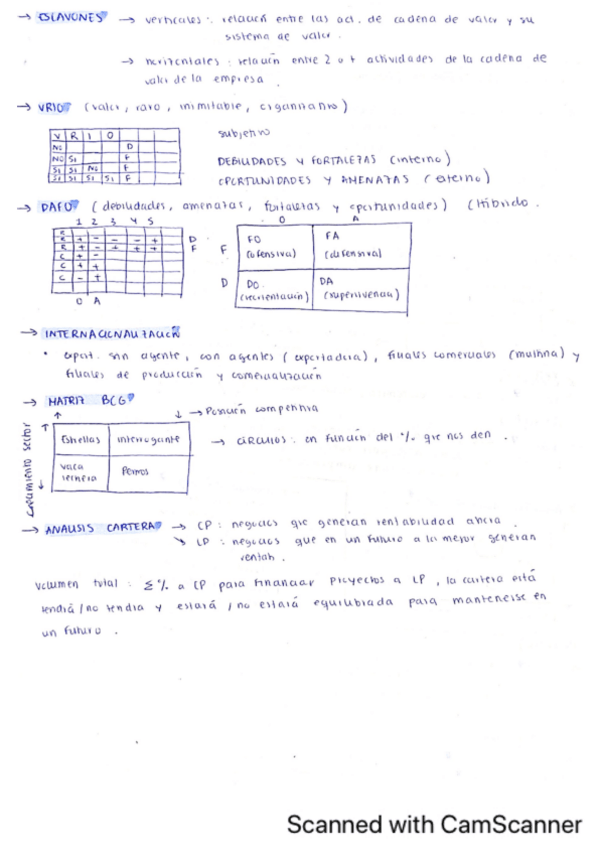 → ESLAVONES → verticales : relación entre las act. de cadena de valor y su
sistema de valor.
→ horizontales : relación entre 2 o + actividades de la cadena de
valor de la empresa.
→ VRIO (valor, raro, inimitable, organizativo)
V R I O
NO D
NO SI F
SI SI NO F
SI SI SI SI F
subjetivo
DEBILIDADES Y FORTALEZAS (interno)
OPORTUNIDADES Y AMENAZAS (externo)
→ DAFO (debilidades, amenazas, fortalezas y oportunidades) (Híbrido.
1 2 3 4 5
E + - - - + D
E + - + + + F
C + -
C + +
C - +
O A
O A
F FO (ofensiva) FA (defensiva)
D DO (reorientación) DA (supervivencia)
→ INTERNACIONALIZACIÓN
• export. sin agente, con agentes (exportadora), filiales comerciales (multina) y
filiales de producción y comercialización
→ MATRIZ BCG
→ Posición competitiva
Crecimiento sector
Estrellas interrogante
vaca lechera Perros
→ CIRCULOS : en función del % que nos den.
→ ANALISIS CARTERA → CP : negocios que generan rentabilidad ahora.
↘ LP : negocios que en un futuro a lo mejor generan
rentab.
Volumen total : Σ % a CP para financiar proyectos a LP, la cartera está
tendrá / no tendrá y estará / no estará equilibrada para mantenerse en
un futuro.
Scanned with CamScanner